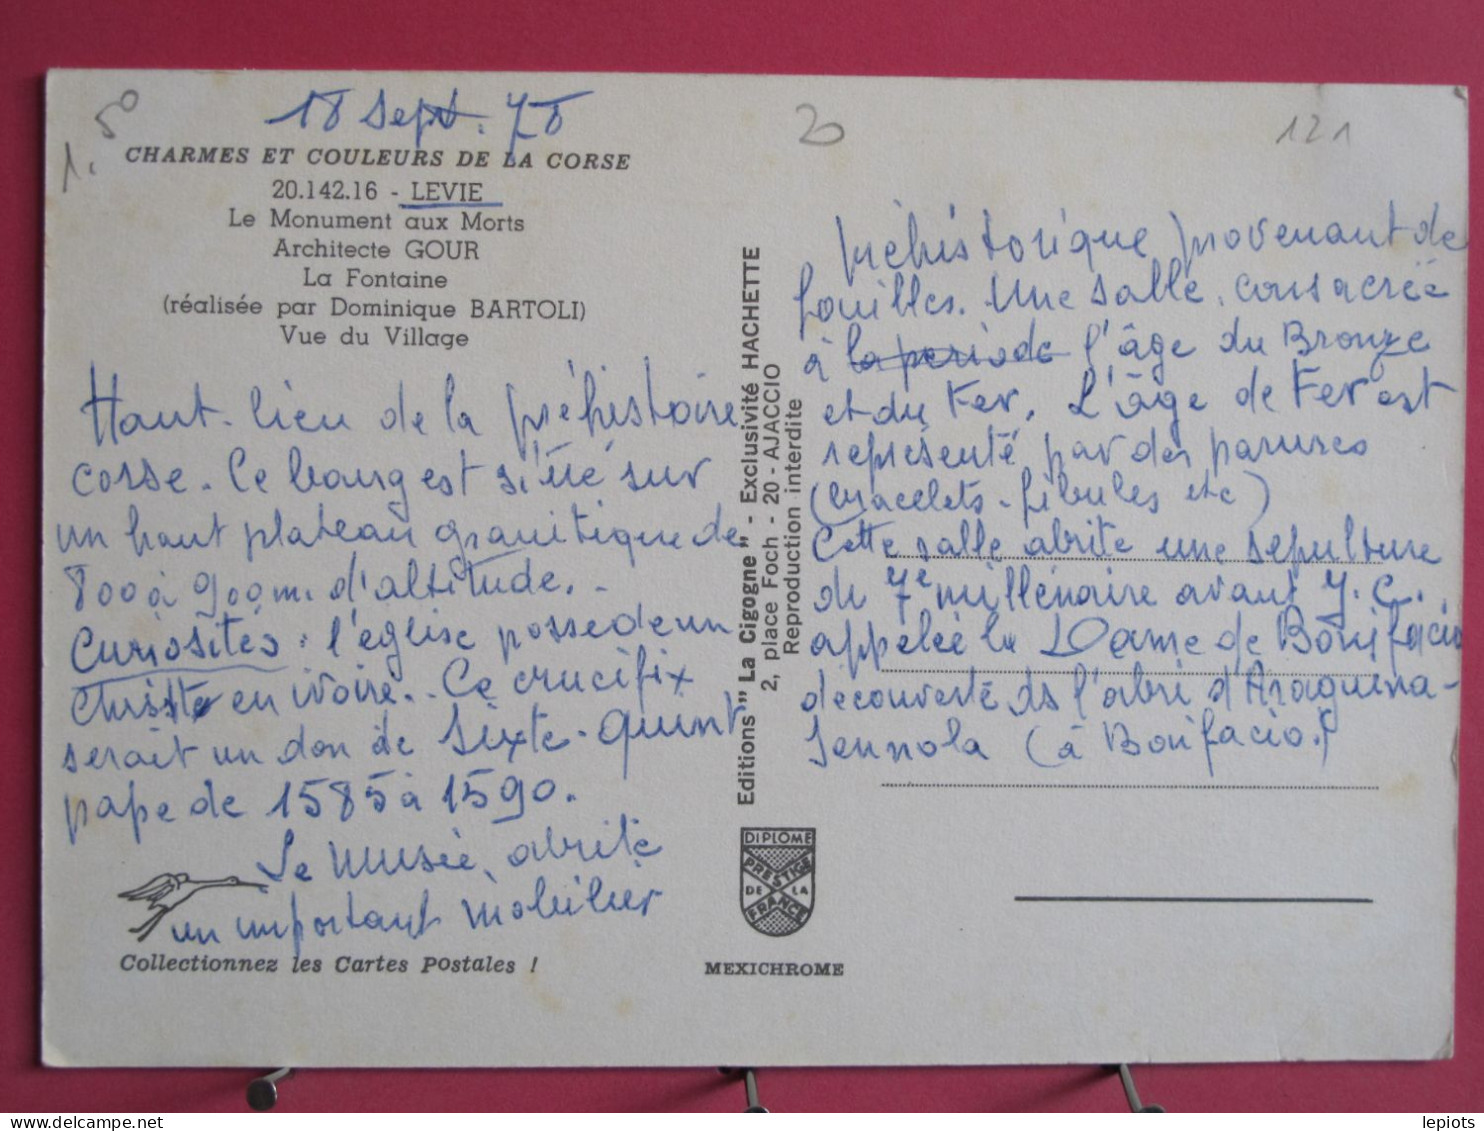 18 Sept. 78
1.50
20
121
CHARMES ET COULEURS DE LA CORSE
20.142.16 - LEVIE
Le Monument aux Morts
Architecte GOUR
La Fontaine
(réalisée par Dominique BARTOLI)
Vue du Village
Haut-lieu de la préhistoire
corse. Ce bourg est situé sur
un haut plateau granitique de
800 à 900 m. d'altitude.
Curiosités : l'église possède un
Christ en ivoire. Ce crucifix
serait un don de Sixte-Quint
pape de 1585 à 1590.
Le Musée, abrite
un important mobilier
Collectionnez les Cartes Postales !
Editions "La Cigogne" - Exclusivité HACHETTE
2, place Foch - 20 - AJACCIO
Reproduction interdite
DIPLOME
PRESTIGE
DE LA
FRANCE
MEXICHROME
préhistorique provenant de
fouilles. Une salle, consacrée
à la période l'âge du Bronze
et du Fer. L'âge de Fer est
représenté par des parures
(bracelets - fibules etc)
Cette salle abrite une sépulture
du 7e millénaire avant J. C.
appelée la Dame de Bonifacio
découverte ds l'abri d'Araguina-
Sennola (à Bonifacio.)
lepiots